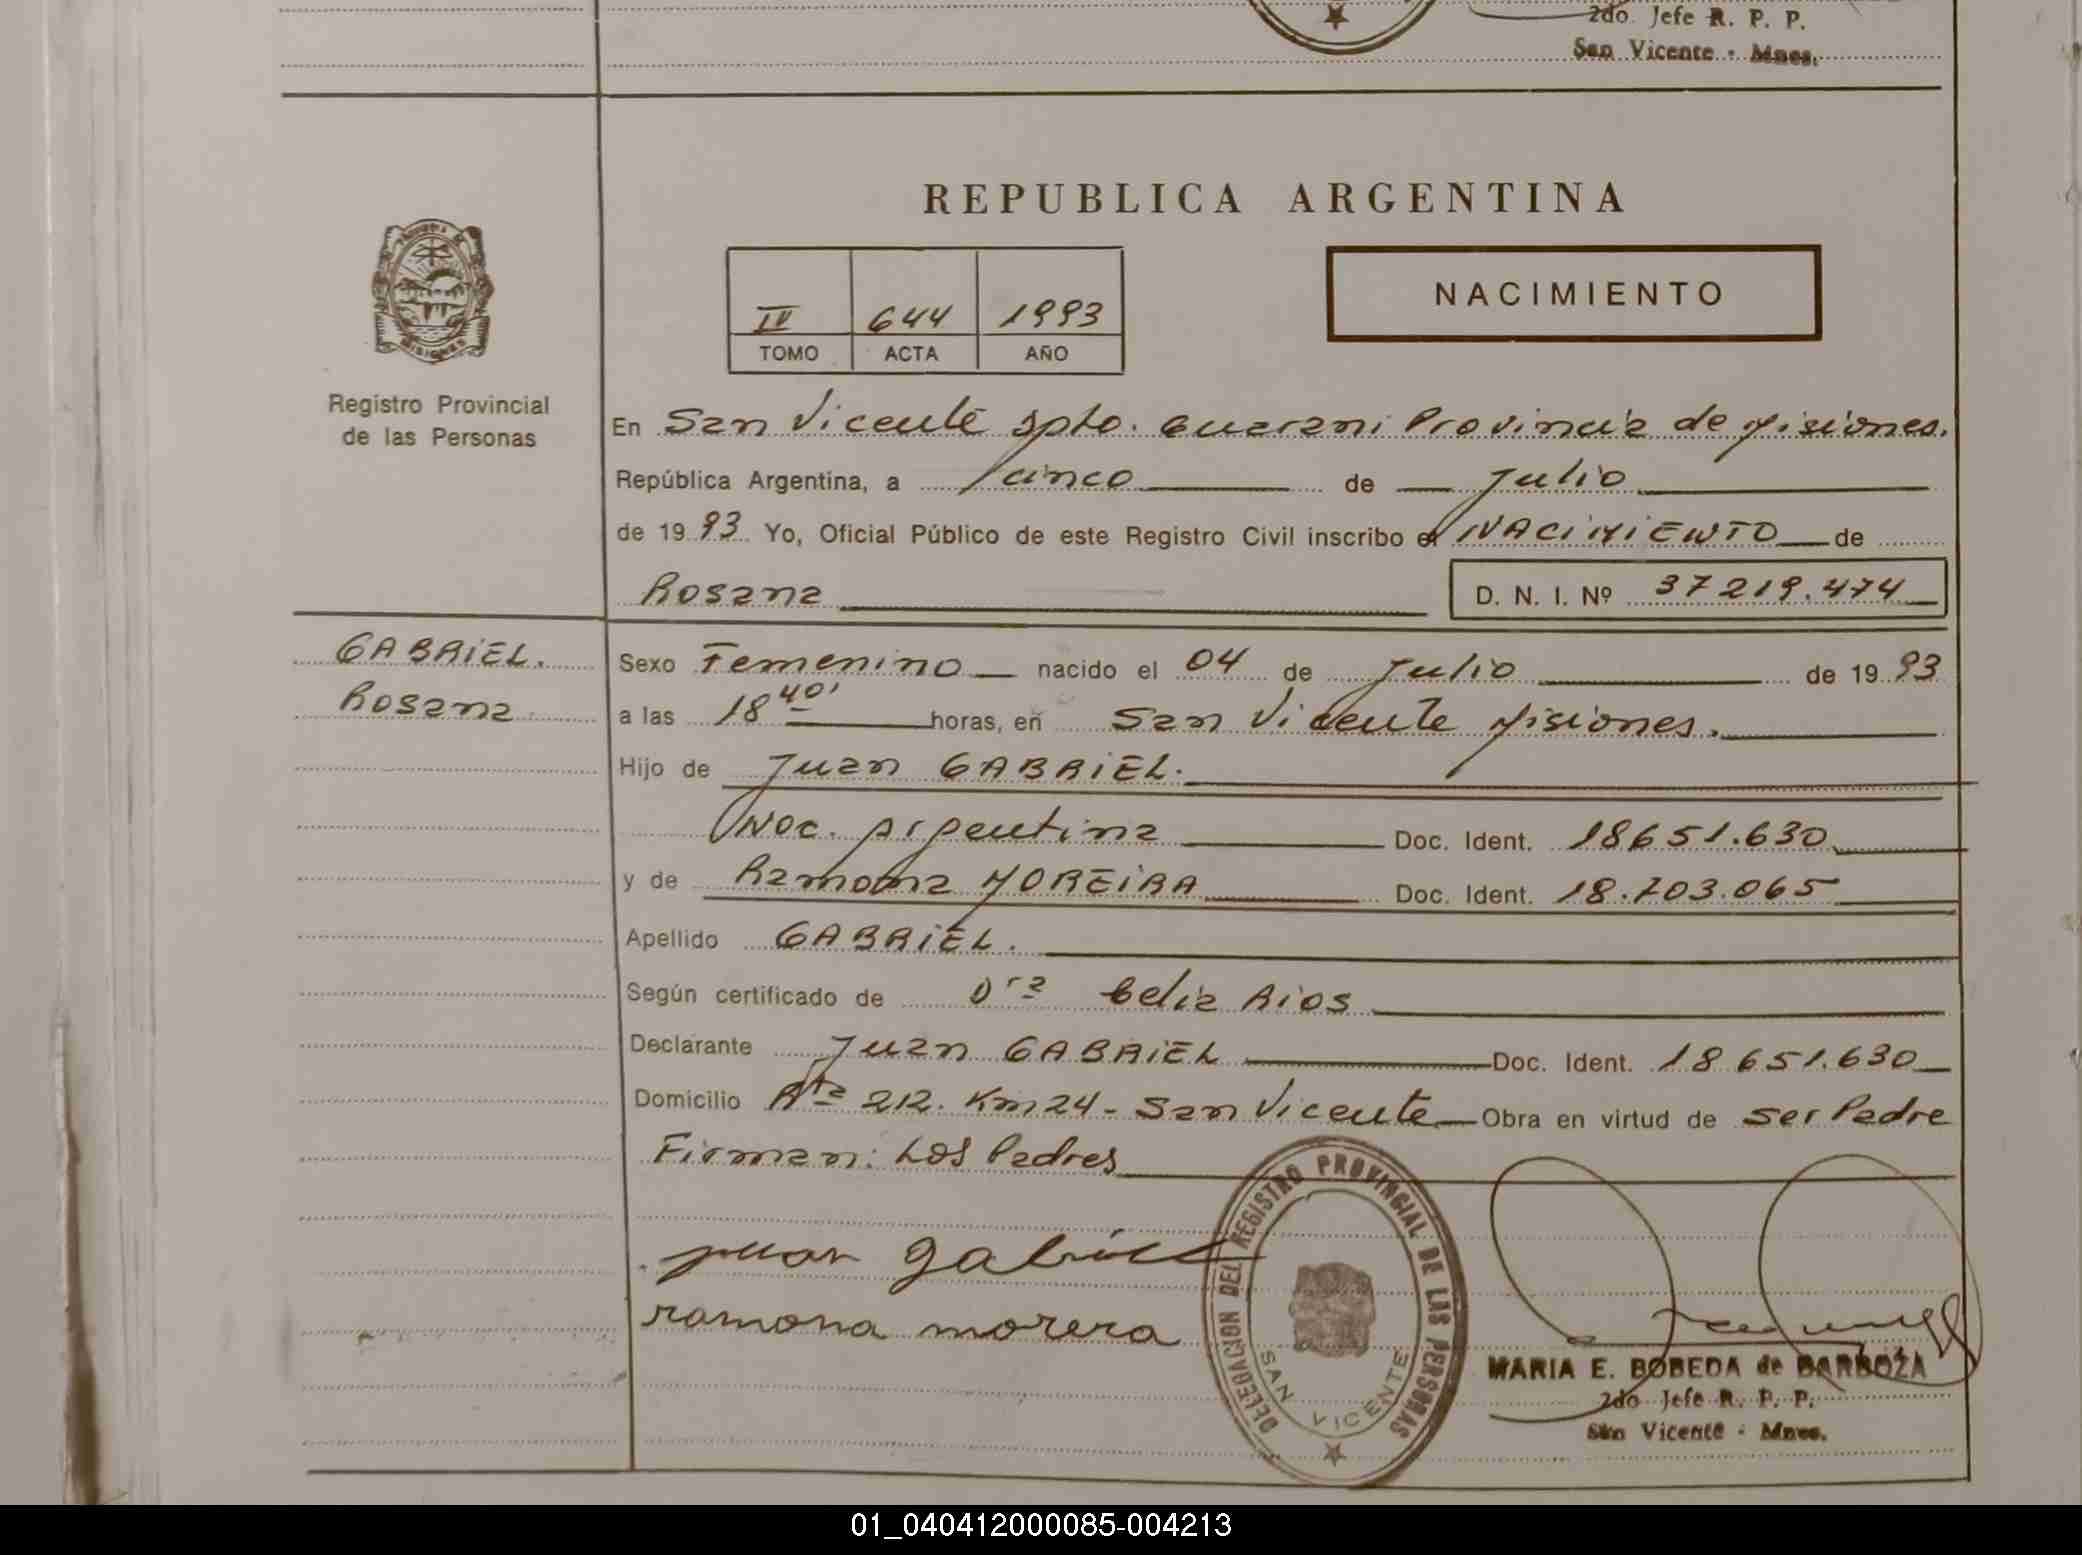 2do. Jefe R. P. P.
San Vicente - Mnes.
REPUBLICA ARGENTINA
NACIMIENTO
IV 644 1993
TOMO ACTA AÑO
Registro Provincial
de las Personas
En San Vicente Dpto. Guarani Provincia de Misiones.
República Argentina, a cinco de Julio
de 1993 Yo, Oficial Público de este Registro Civil inscribo el NACIMIENTO de
Rosana D. N. I. Nº 37219.474
GABRIEL.
Rosana
Sexo Femenino nacido el 04 de Julio de 1993
a las 18 40' horas, en San Vicente Misiones.
Hijo de Juan GABRIEL.
Nac. Argentina Doc. Ident. 18651.630
y de Ramona MOREIRA Doc. Ident. 18.703.065
Apellido GABRIEL.
Según certificado de Dra Celia Rios
Declarante Juan GABRIEL Doc. Ident. 18651.630
Domicilio Rta 212. Km 24 - San Vicente Obra en virtud de ser Padre
Firman: Los Padres
juan gabriel
ramona morera
DELEGACION DEL REGISTRO PROVINCIAL DE LAS PERSONAS
SAN VICENTE
MARIA E. BOBEDA de BARBOZA
2do Jefe R. P. P.
San Vicente - Mnes.
01_040412000085-004213